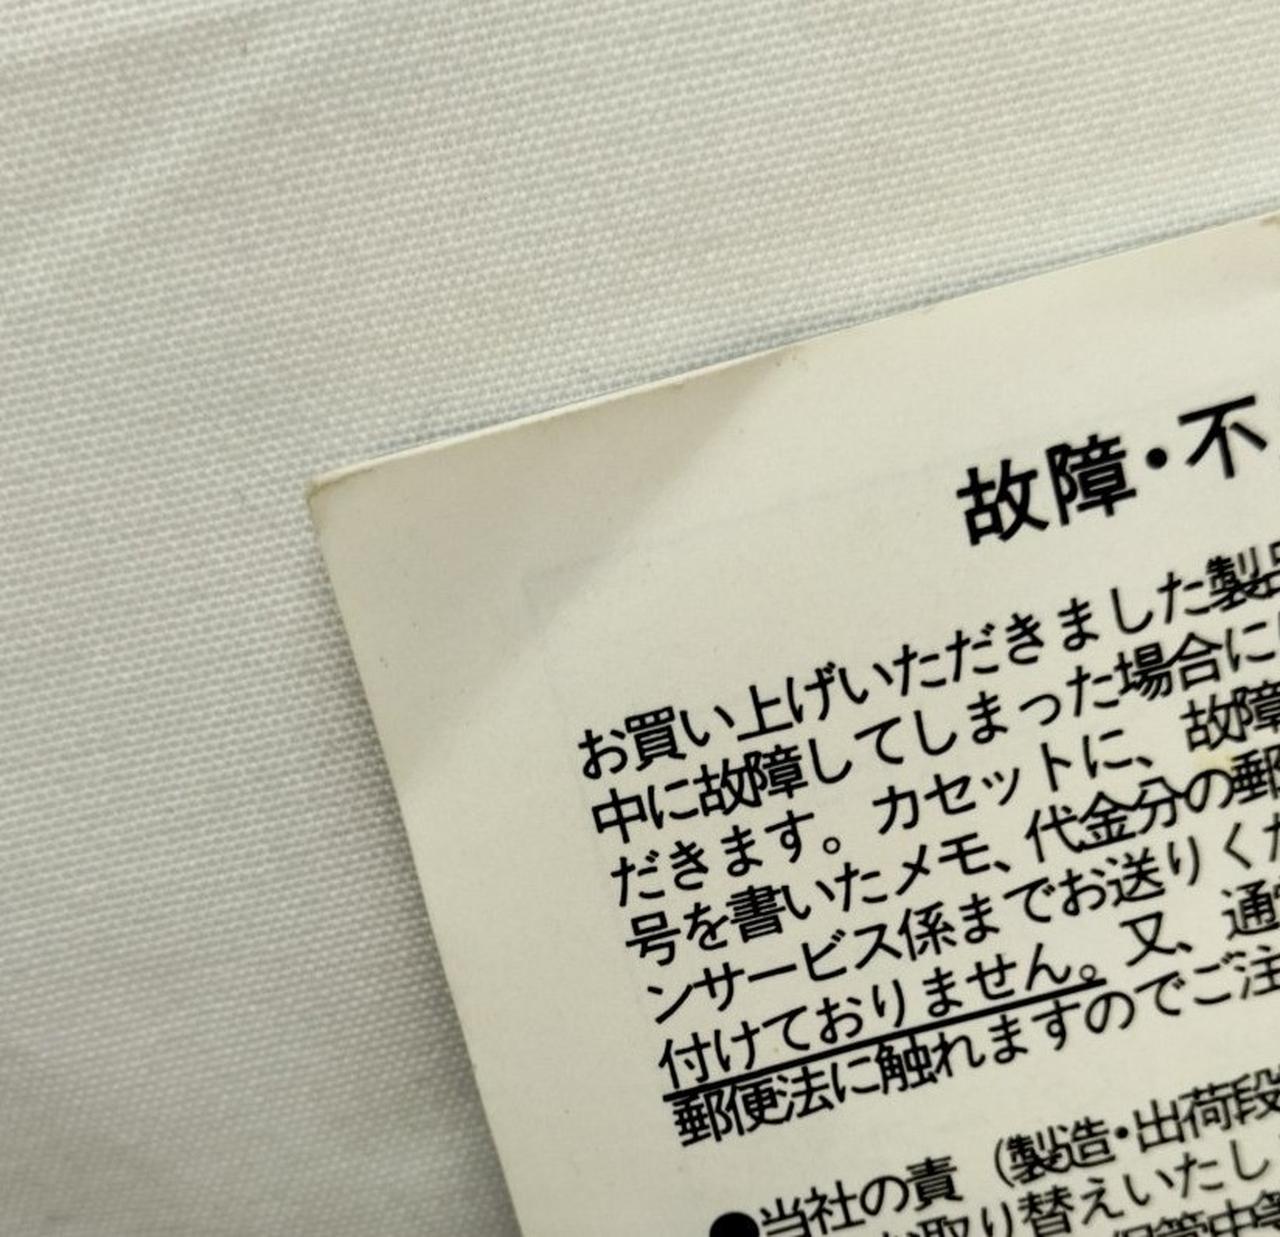 故障・不
お買い上げいただきました製品
中に故障してしまった場合に
だきます。カセットに、故障
号を書いたメモ、代金分の郵
ンサービス係までお送りくだ
付けておりません。又、通
郵便法に触れますのでご注
●当社の責（製造・出荷段
お取り替えいたし
保管中等